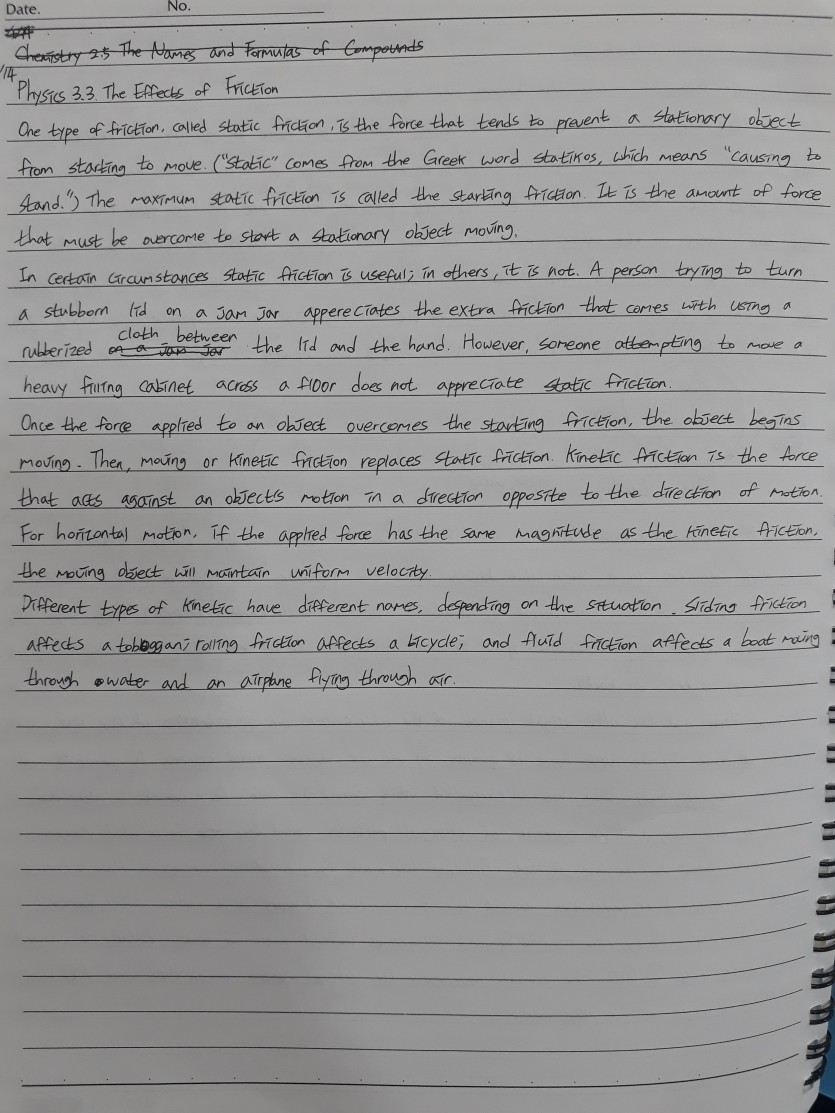 Date. No.
Chemistry 2.5 The Names and Formulas of Compounds
/14
Physics 3.3. The Effects of Friction
One type of friction, called static friction, is the force that tends to prevent a stationary object
from starting to move. ("Static" comes from the Greek word statikos, which means "causing to
stand.") The maximum static friction is called the starting friction. It is the amount of force
that must be overcome to start a stationary object moving.
In certain circumstances static friction is useful; in others, it is not. A person trying to turn
a stubborn lid on a jam jar appereciates the extra friction that comes with using a
cloth between
rubberized on a jam jar the lid and the hand. However, someone attempting to move a
heavy filling cabinet across a floor does not appreciate static friction.
Once the force applied to an object overcomes the starting friction, the object begins
moving. Then, moving or kinetic friction replaces static friction. Kinetic friction is the force
that acts against an object's motion in a direction opposite to the direction of motion.
For horizontal motion, if the applied force has the same magnitude as the kinetic friction,
the moving object will maintain uniform velocity.
Different types of kinetic have different names, despending on the situation. Sliding friction
affects a toboggan; rolling friction affects a bicycle; and fluid friction affects a boat moving
through water and an airplane flying through air.